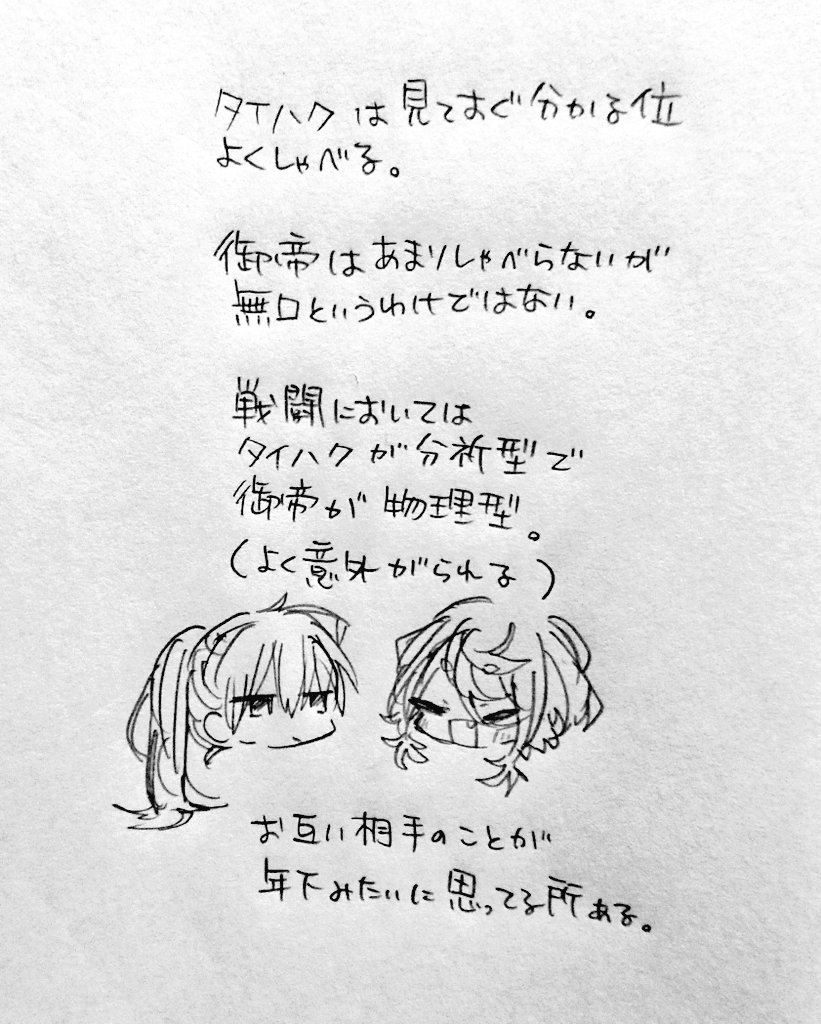 タイハクは見てすぐ分かる位
よくしゃべる。
御帝はあまりしゃべらないが
無口というわけではない。
戦闘においては
タイハクが分析型で
御帝が物理型。
(よく意外がられる)
お互い相手のことが
年下みたいに思ってる所ある。